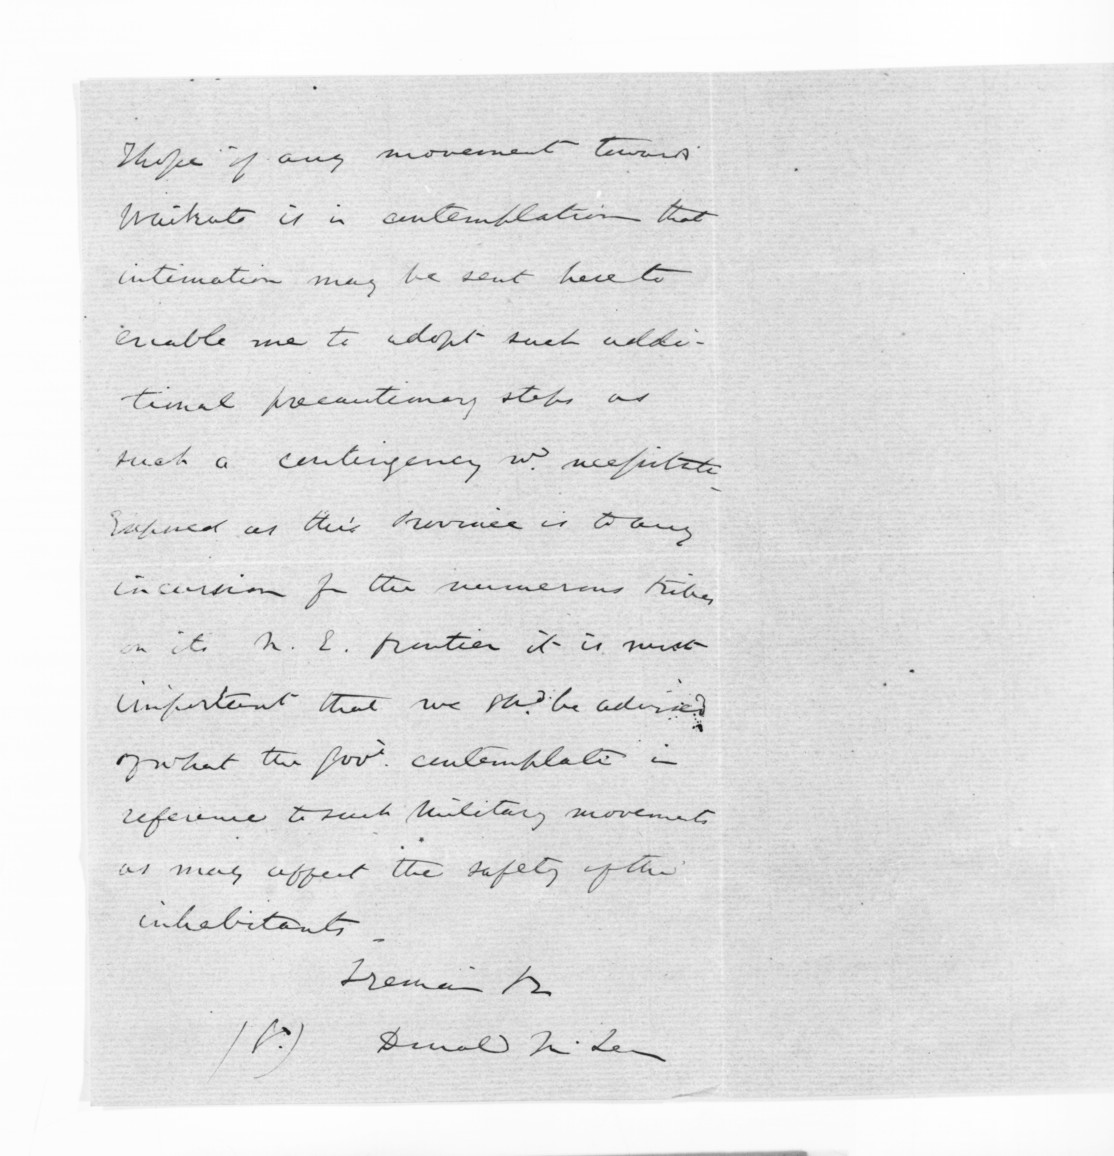 I hope if any movement towards
Waikato is in contemplation that
intimation may be sent here to
enable me to adopt such addi-
tional precautionary steps as
such a contingency wd. necessitate
Exposed as this Province is to any
incursion fm the numerous tribes
on its N. E. frontier it is most
important that we shd. be advised
of what the Govt. contemplate in
reference to such Military movements
as may affect the safety of the
inhabitants
I remain
Donald McLean